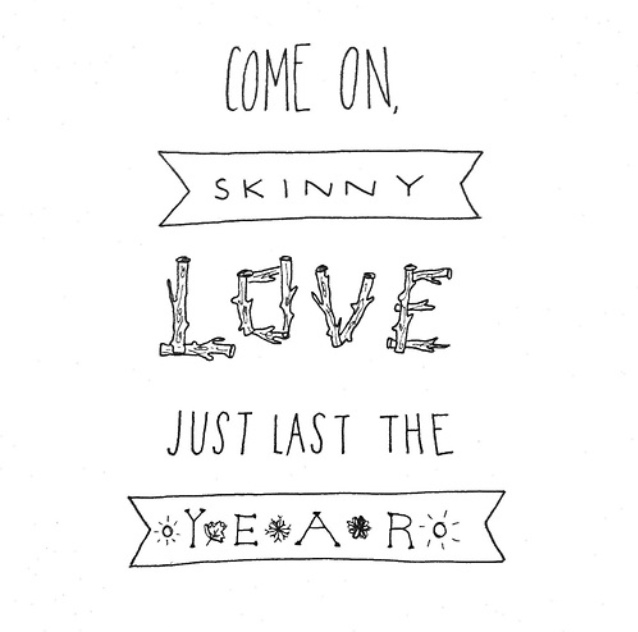 COME ON,
SKINNY
LOVE
JUST LAST THE
YEAR